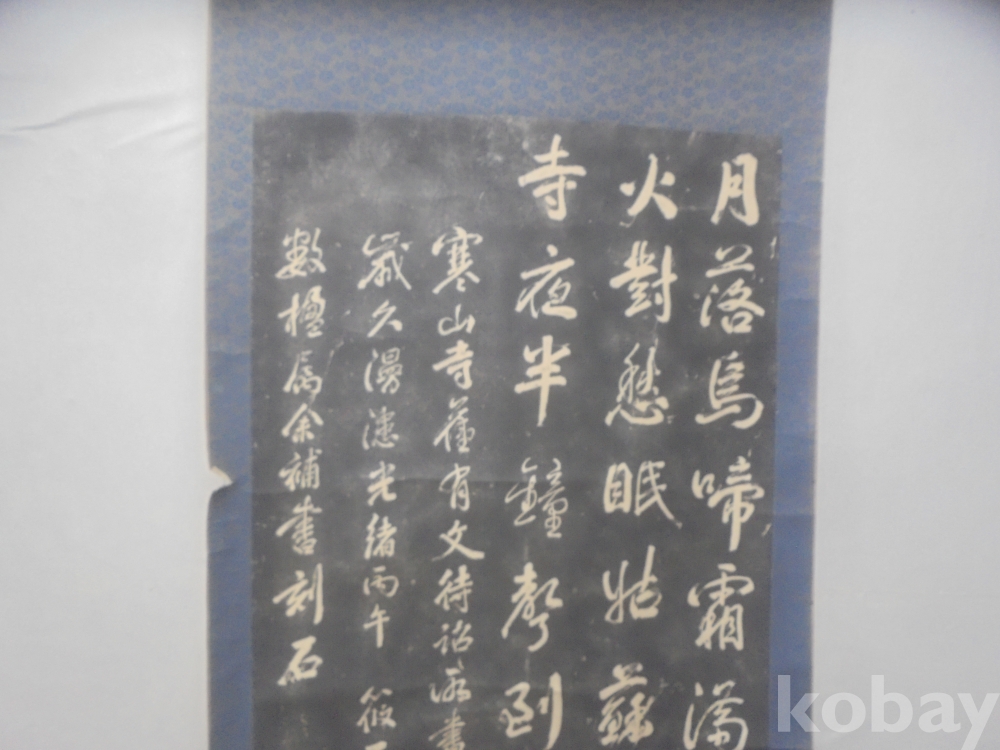 月落烏啼霜滿
火對愁眠姑蘇
寺夜半鐘聲到
寒山寺舊有文待詔所書
歲久漫漶光緒丙午 筱
數楹屬余補書刻石
kobay